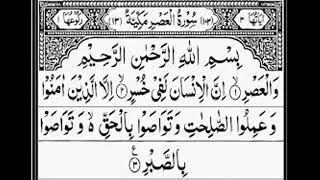 اٰيَاتُهَا ٣ (١٠٣) سُوْرَةُ الْعَصْرِ مَكِّيَّةٌ (١٣) رُكُوْعُهَا ١
بِسْمِ اللّٰهِ الرَّحْمٰنِ الرَّحِيْمِ
وَالْعَصْرِ ۙ‏﴿١﴾ اِنَّ الْاِنْسَانَ لَفِىْ خُسْرٍ ۙ‏﴿٢﴾ اِلَّا الَّذِيْنَ اٰمَنُوْا
وَعَمِلُوا الصّٰلِحٰتِ وَتَوَاصَوْا بِالْحَقِّ ۙ۬ وَتَوَاصَوْا
بِالصَّبْرِ ﴿٣﴾ ع